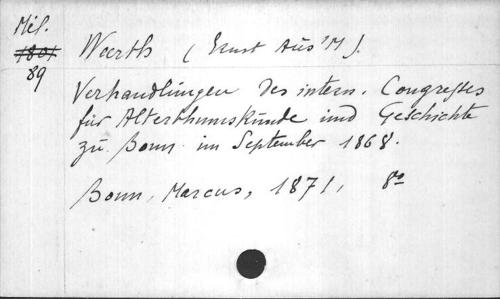 Mél.
1801
89
Weerth (Ernst Aus'M).
Verhandlungen des intern. Congresses
für Alterthumskunde und Geschichte
zu Bonn im September 1868.
Bonn, Marcus, 1871, 8º